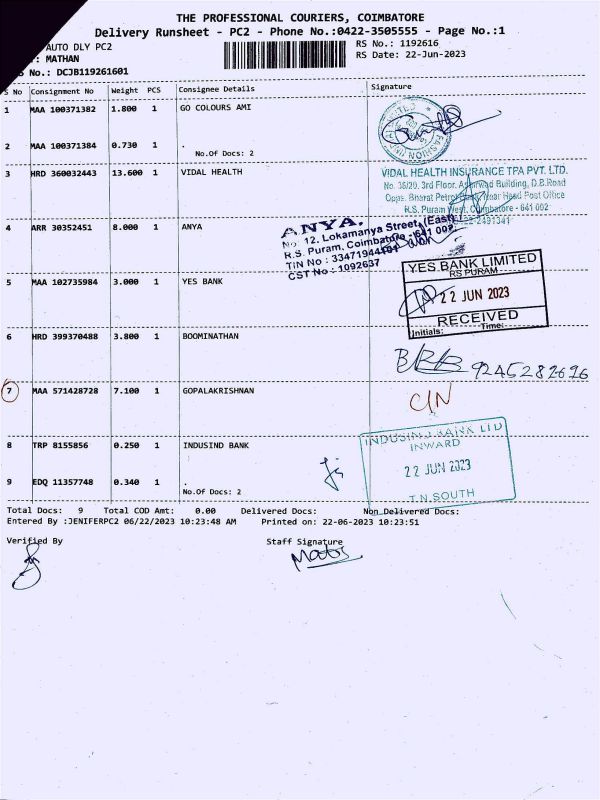 THE PROFESSIONAL COURIERS, COIMBATORE
Delivery Runsheet - PC2 - Phone No.:0422-3505555 - Page No.:1
AUTO DLY PC2
RS No.: 1192616
: MATHAN
RS Date: 22-Jun-2023
No.: DCJB119261601
S No Consignment No Weight PCS Consignee Details Signature
1 MAA 100371382 1.800 1 GO COLOURS AMI
2 MAA 100371384 0.730 1 .
No.Of Docs: 2
FASHION
3 HRD 360032443 13.600 1 VIDAL HEALTH
VIDAL HEALTH INSURANCE TPA PVT. LTD.
No. 36/20. 3rd Floor, Building, D.B.Road
Opps. Bharat Petrol Near Head Post Office
R.S. Puram West, Coimbatore - 641 002
4 ARR 30352451 8.000 1 ANYA
ANYA.
No. 12, Lokamanya Street, (East)
R.S. Puram, Coimbatore - 641 002
TIN No : 33471944101
CST No : 1092637
5 MAA 102735984 3.000 1 YES BANK
YES BANK LIMITED
RS PURAM
22 JUN 2023
RECEIVED
Initials: Time:
6 HRD 399370488 3.800 1 BOOMINATHAN
9245282696
7 MAA 571428728 7.100 1 GOPALAKRISHNAN
C/N
8 TRP 8155856 0.250 1 INDUSIND BANK
INDUSIND BANK LTD
INWARD
22 JUN 2023
T.N.SOUTH
9 EDQ 11357748 0.340 1 .
No.Of Docs: 2
Total Docs: 9 Total COD Amt: 0.00 Delivered Docs: Non Delivered Docs:
Entered By :JENIFERPC2 06/22/2023 10:23:48 AM Printed on: 22-06-2023 10:23:51
Verified By Staff Signature